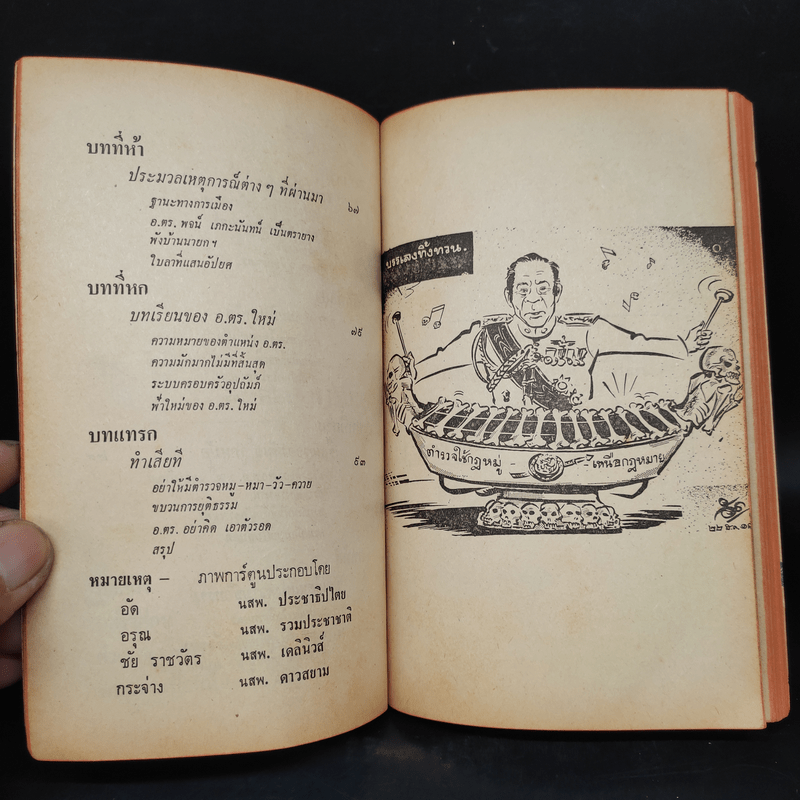 บทที่ห้า
ประมวลเหตุการณ์ต่าง ๆ ที่ผ่านมา ๖๗
ฐานะทางการเมือง
อ.ตร. พจน์ เภกะนันทน์ เป็นตรายาง
พังบ้านนายกฯ
ใบลาที่แสนอัปยศ
บทที่หก
บทเรียนของ อ.ตร. ใหม่ ๗๙
ความหมายของตำแหน่ง อ.ตร.
ความมักมากไม่มีที่สิ้นสุด
ระบบครอบครัวอุปถัมภ์
พ่อใหม่ของ อ.ตร. ใหม่
บทแทรก
ทำเสียที ๙๓
อย่าให้มีตำรวจหมู-หมา-วัว-ควาย
ขบวนการยุติธรรม
อ.ตร. อย่าคิด เอาตัวรอด
สรุป
หมายเหตุ – ภาพการ์ตูนประกอบโดย
อัด นสพ. ประชาธิปไตย
อรุณ นสพ. รวมประชาชาติ
ชัย ราชวัตร นสพ. เดลินิวส์
กระจ่าง นสพ. ดาวสยาม
บรรเลงทิ้งทวน.
ตำรวจใช้กฎหมู่ เหนือกฎหมาย